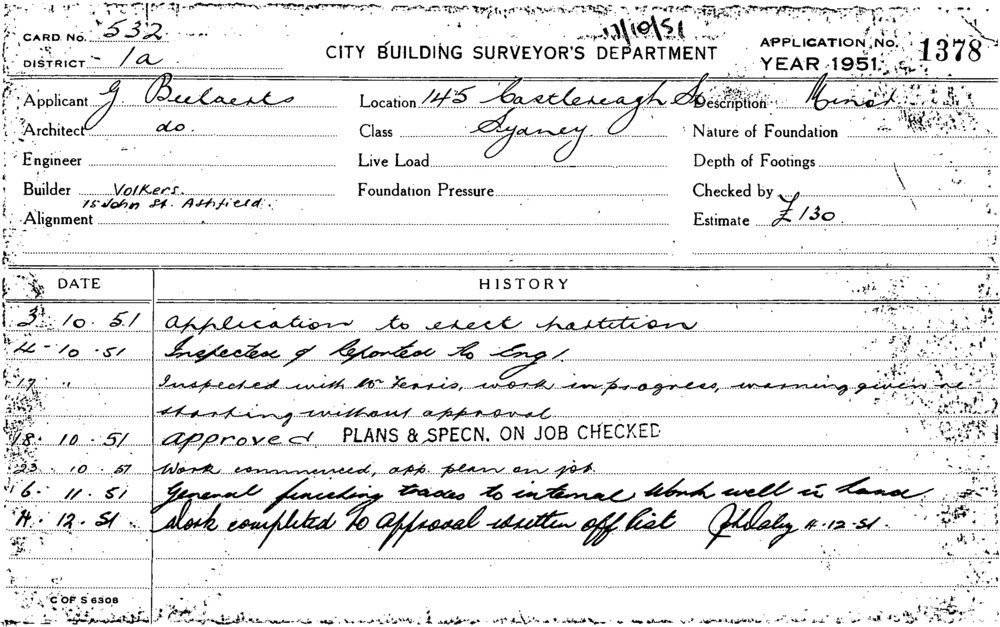 11/10/51
CARD No. 532
CITY BUILDING SURVEYOR'S DEPARTMENT
APPLICATION No. 1378
DISTRICT 1a
YEAR 1951.
Applicant G Beelaerts Location 145 Castlereagh St. Description Minor
Architect do. Class Sydney Nature of Foundation
Engineer Live Load Depth of Footings
Builder Volkers. Foundation Pressure Checked by
15 John St. Ashfield.
Alignment Estimate £130
DATE HISTORY
3. 10. 51 Application to erect partition
4-10.51 Inspected & Reported to Eng.
17 " Inspected with Mr Ferris, work in progress, warning given re
starting without approval
18. 10. 51 Approved PLANS & SPECN. ON JOB CHECKED
23. 10. 51 Work commenced, app. plan on job
6. 11. 51 General finishing trades to internal work well in hand
4. 12. 51 Work completed to approval written off list 4-12-51.
C OF S 6308